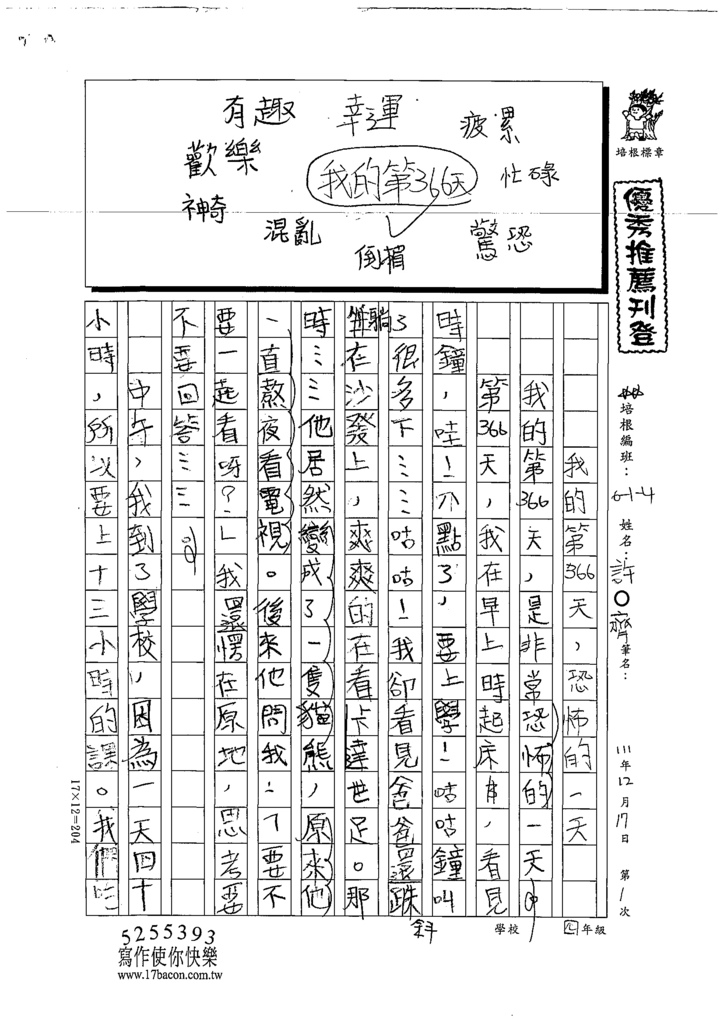 有趣 幸運 疲累
歡樂 我的第366天 忙碌
神奇 混亂 倒楣 驚恐
培根標章
優秀推薦刊登
培根編班：6-1-4 姓名：許○齊 筆名： 111年12月17日 第1次
學校 四年級
我的第366天，恐怖的一天
我的第366天，是非常恐怖的一天。
第366天，我在早上時起床，看見
時鐘，哇！八點了，要上學！咕咕鐘叫
了很多下……咕咕！我卻看見爸爸還跌
躺在沙發上，爽爽的在看卡達世足。那
時……他居然變成了一隻貓熊，原來他
一直熬夜看電視。後來他問我：「要不
要一起看呀？」我還愣在原地，思考要
不要回答……
中午，我到了學校，因為一天四十
小時，所以要上十三小時的課。我們
17×12=204
5255393
寫作使你快樂
www.17bacon.com.tw